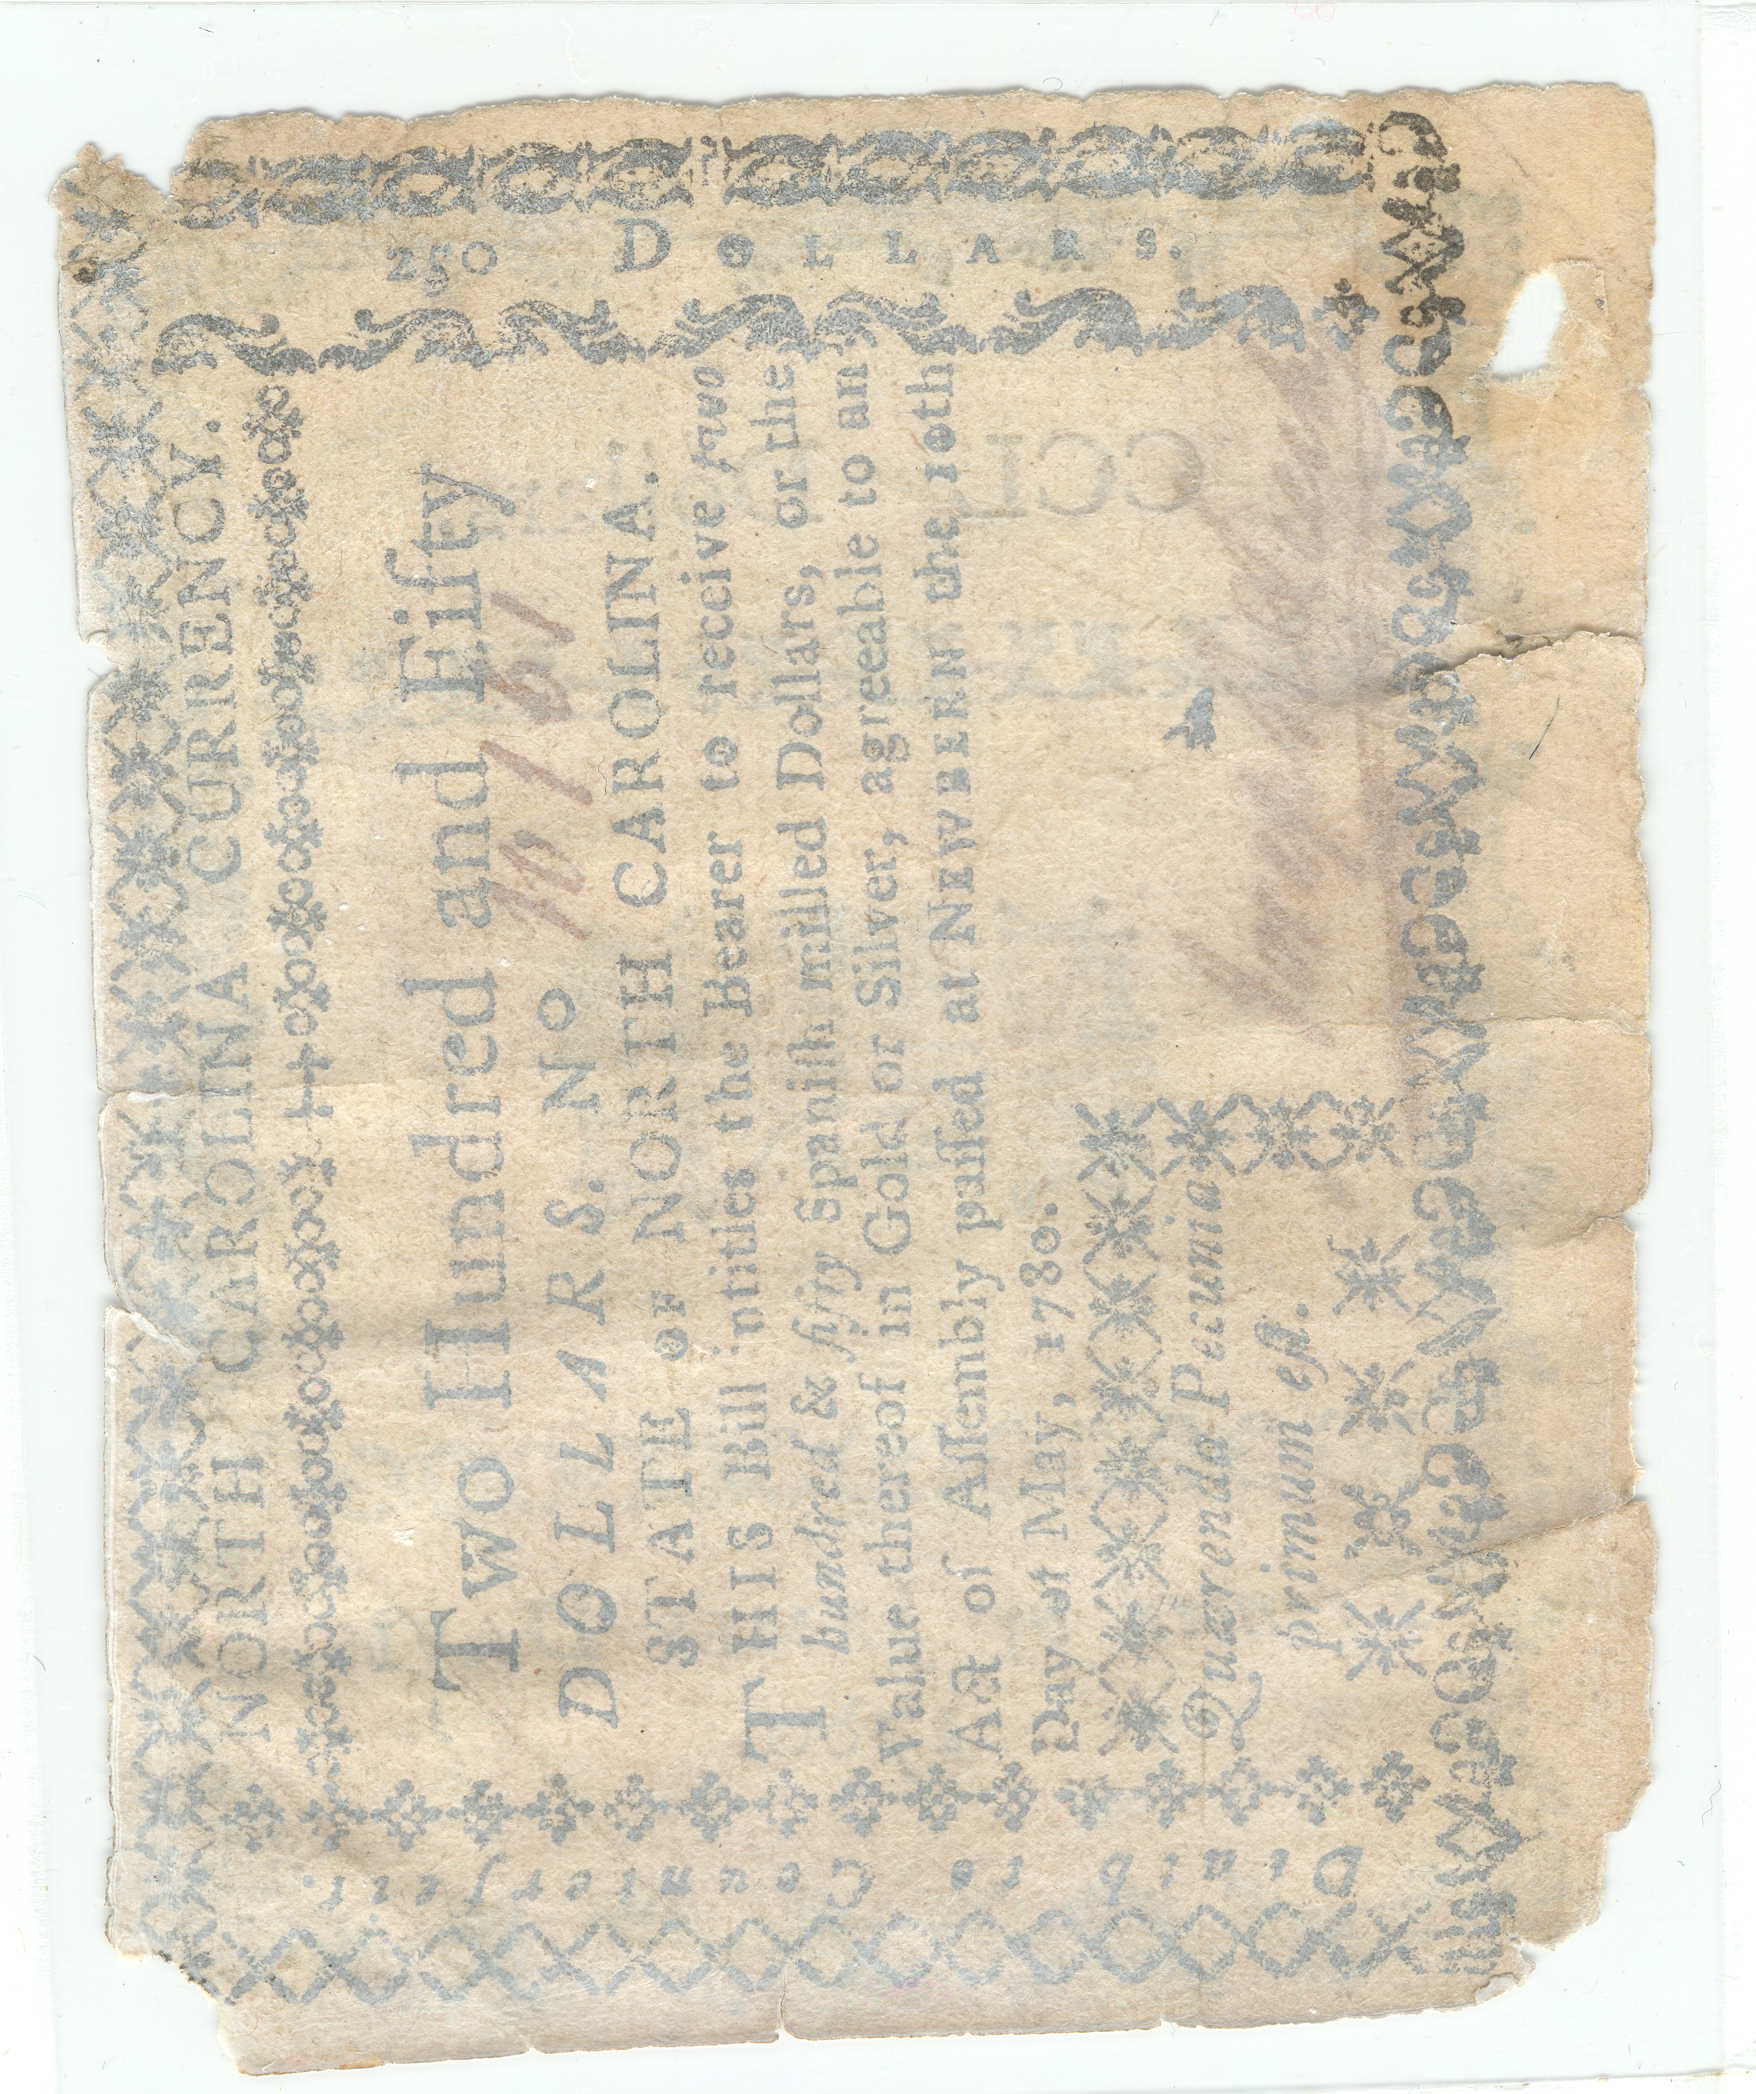 NORTH CAROLINA CURRENCY.
Two Hundred and Fifty
DOLLARS. No 10161
STATE OF NORTH CAROLINA.
THIS Bill intitles the Bearer to receive two
hundred & fifty Spaniſh milled Dollars, or the
Value thereof in Gold or Silver, agreeable to an
Act of Aſſembly paſſed at NEWBERN the 10th
Day of May, 1780.
Quærenda Pecunia
primum eſt.
250 DOLLARS.
Death to Counterfeit.